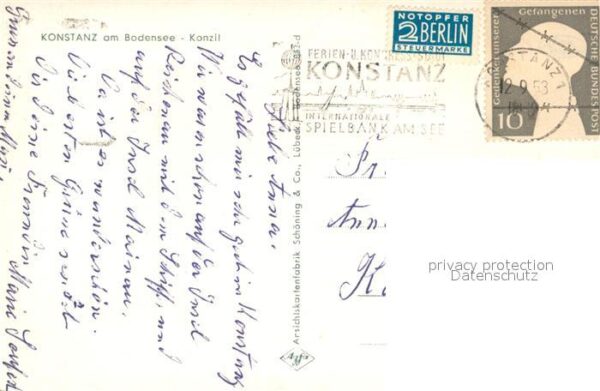 KONSTANZ am Bodensee - Konzil
Liebe Anna!
Es gefällt mir sehr gut in Konstanz
Wir waren schon auf der Insel
Reichenau mit dem Schiff und
auf der Insel Mainau.
Da ist es wunderschön.
Die besten Grüße
Dir Deine
Marie
Ansichtskartenfabrik Schöning & Co., Lübeck
Bodensee
NOTOPFER
2 BERLIN
STEUERMARKE
FERIEN- U. KONGRESS-STADT
KONSTANZ
INTERNATIONALE
SPIELBANK AM SEE
KONSTANZ 1
12.9.53
Gedenket unserer Gefangenen
DEUTSCHE BUNDESPOST
10
Fr
Ann
K
privacy protection
Datenschutz